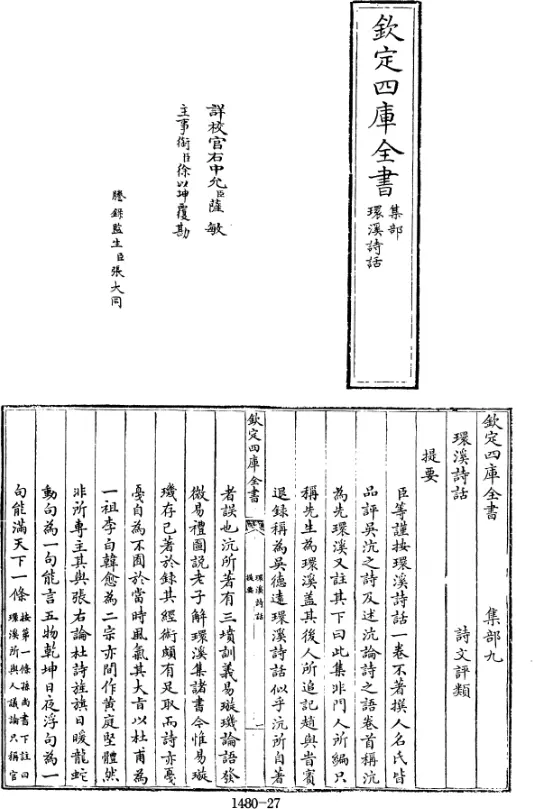 欽定四庫全書
集部
環溪詩話
詳校官右中允臣薩敏
主事銜臣徐以坤覆勘
謄錄監生臣張大同
欽定四庫全書 集部九
環溪詩話 詩文評類
提要
臣等謹按環溪詩話一卷不著撰人名氏皆
品評吳沆之詩及述沆論詩之語卷首稱沆
為先環溪又註其下曰此集非門人所編只
稱先生為環溪蓋其後人所追記趙與旹賓
退錄稱為吳德遠環溪詩話似乎沆所自著
欽定四庫全書
環溪詩話
提要
者誤也沆所著有三墳訓義易璇璣論語發
微易禮圖說老子解環溪集諸書今惟易璇
璣存已著於錄其經術頗有足取而詩亦戛
戛自為不囿於當時風氣其大旨以杜甫為
一祖李白韓愈為二宗亦間作黃庭堅體然
非所專主其與張右論杜詩旌旗日暖龍蛇
動句為一句能言五物乾坤日夜浮句為一
句能滿天下一條
按第一條孫尚書下註曰
環溪所與人議論只稱官
1480-27